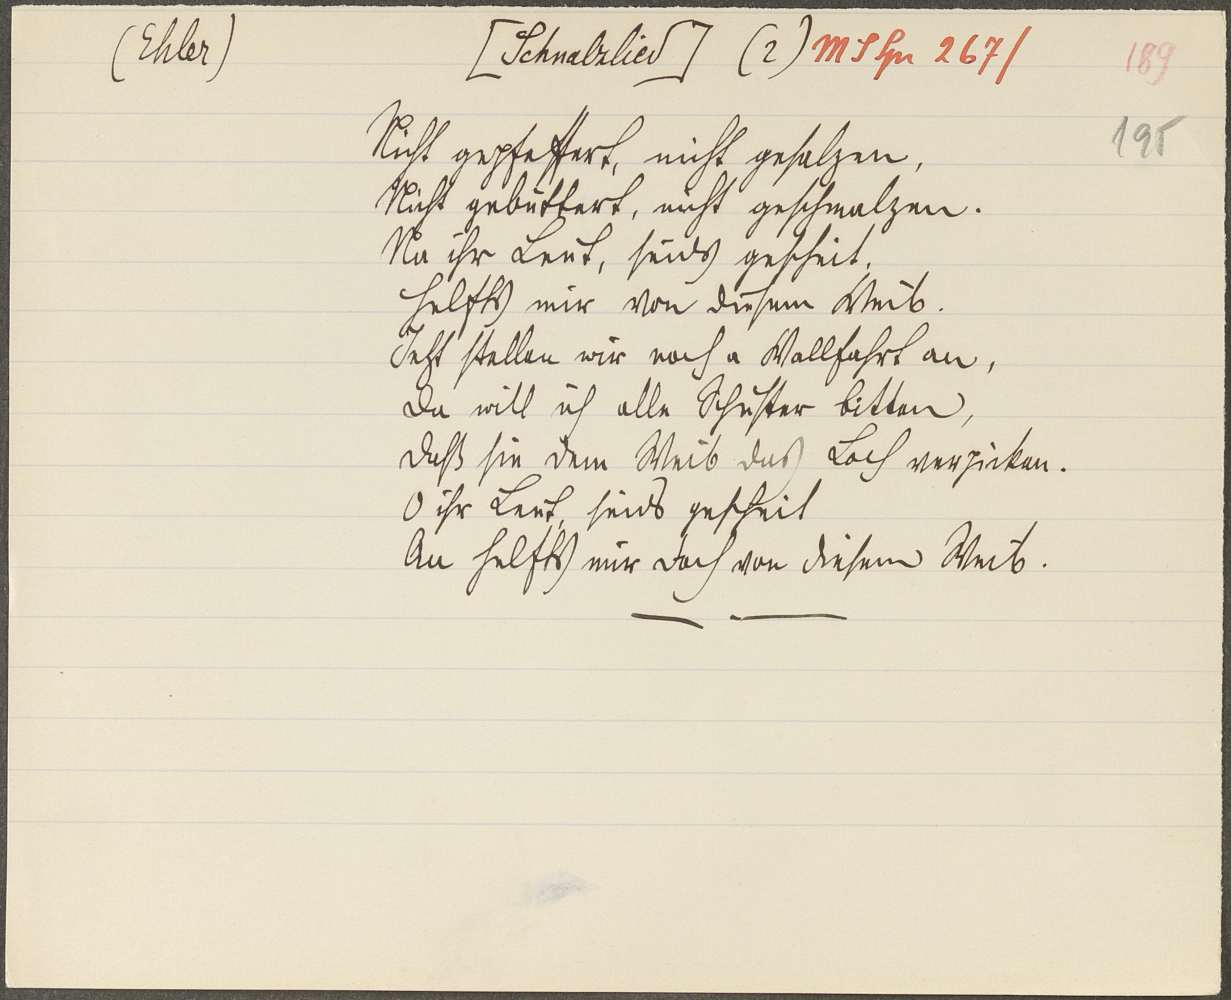 (Ehler) [Schnalzlied] (2) 267/ 189
195
Nicht gepfeffert, nicht gesalzen,
Nicht gebuttert, nicht geschmalzen.
Na ihr Leut, seids gescheit,
helfts mir von diesem Weib.
Jetzt stellen wir noch a Wallfahrt an,
Da will ich alle Schuster bitten,
Daß sie dem Weib das Loch verpicken.
O ihr Leut, seids gescheit
An helfts mir doch von diesem Weib.